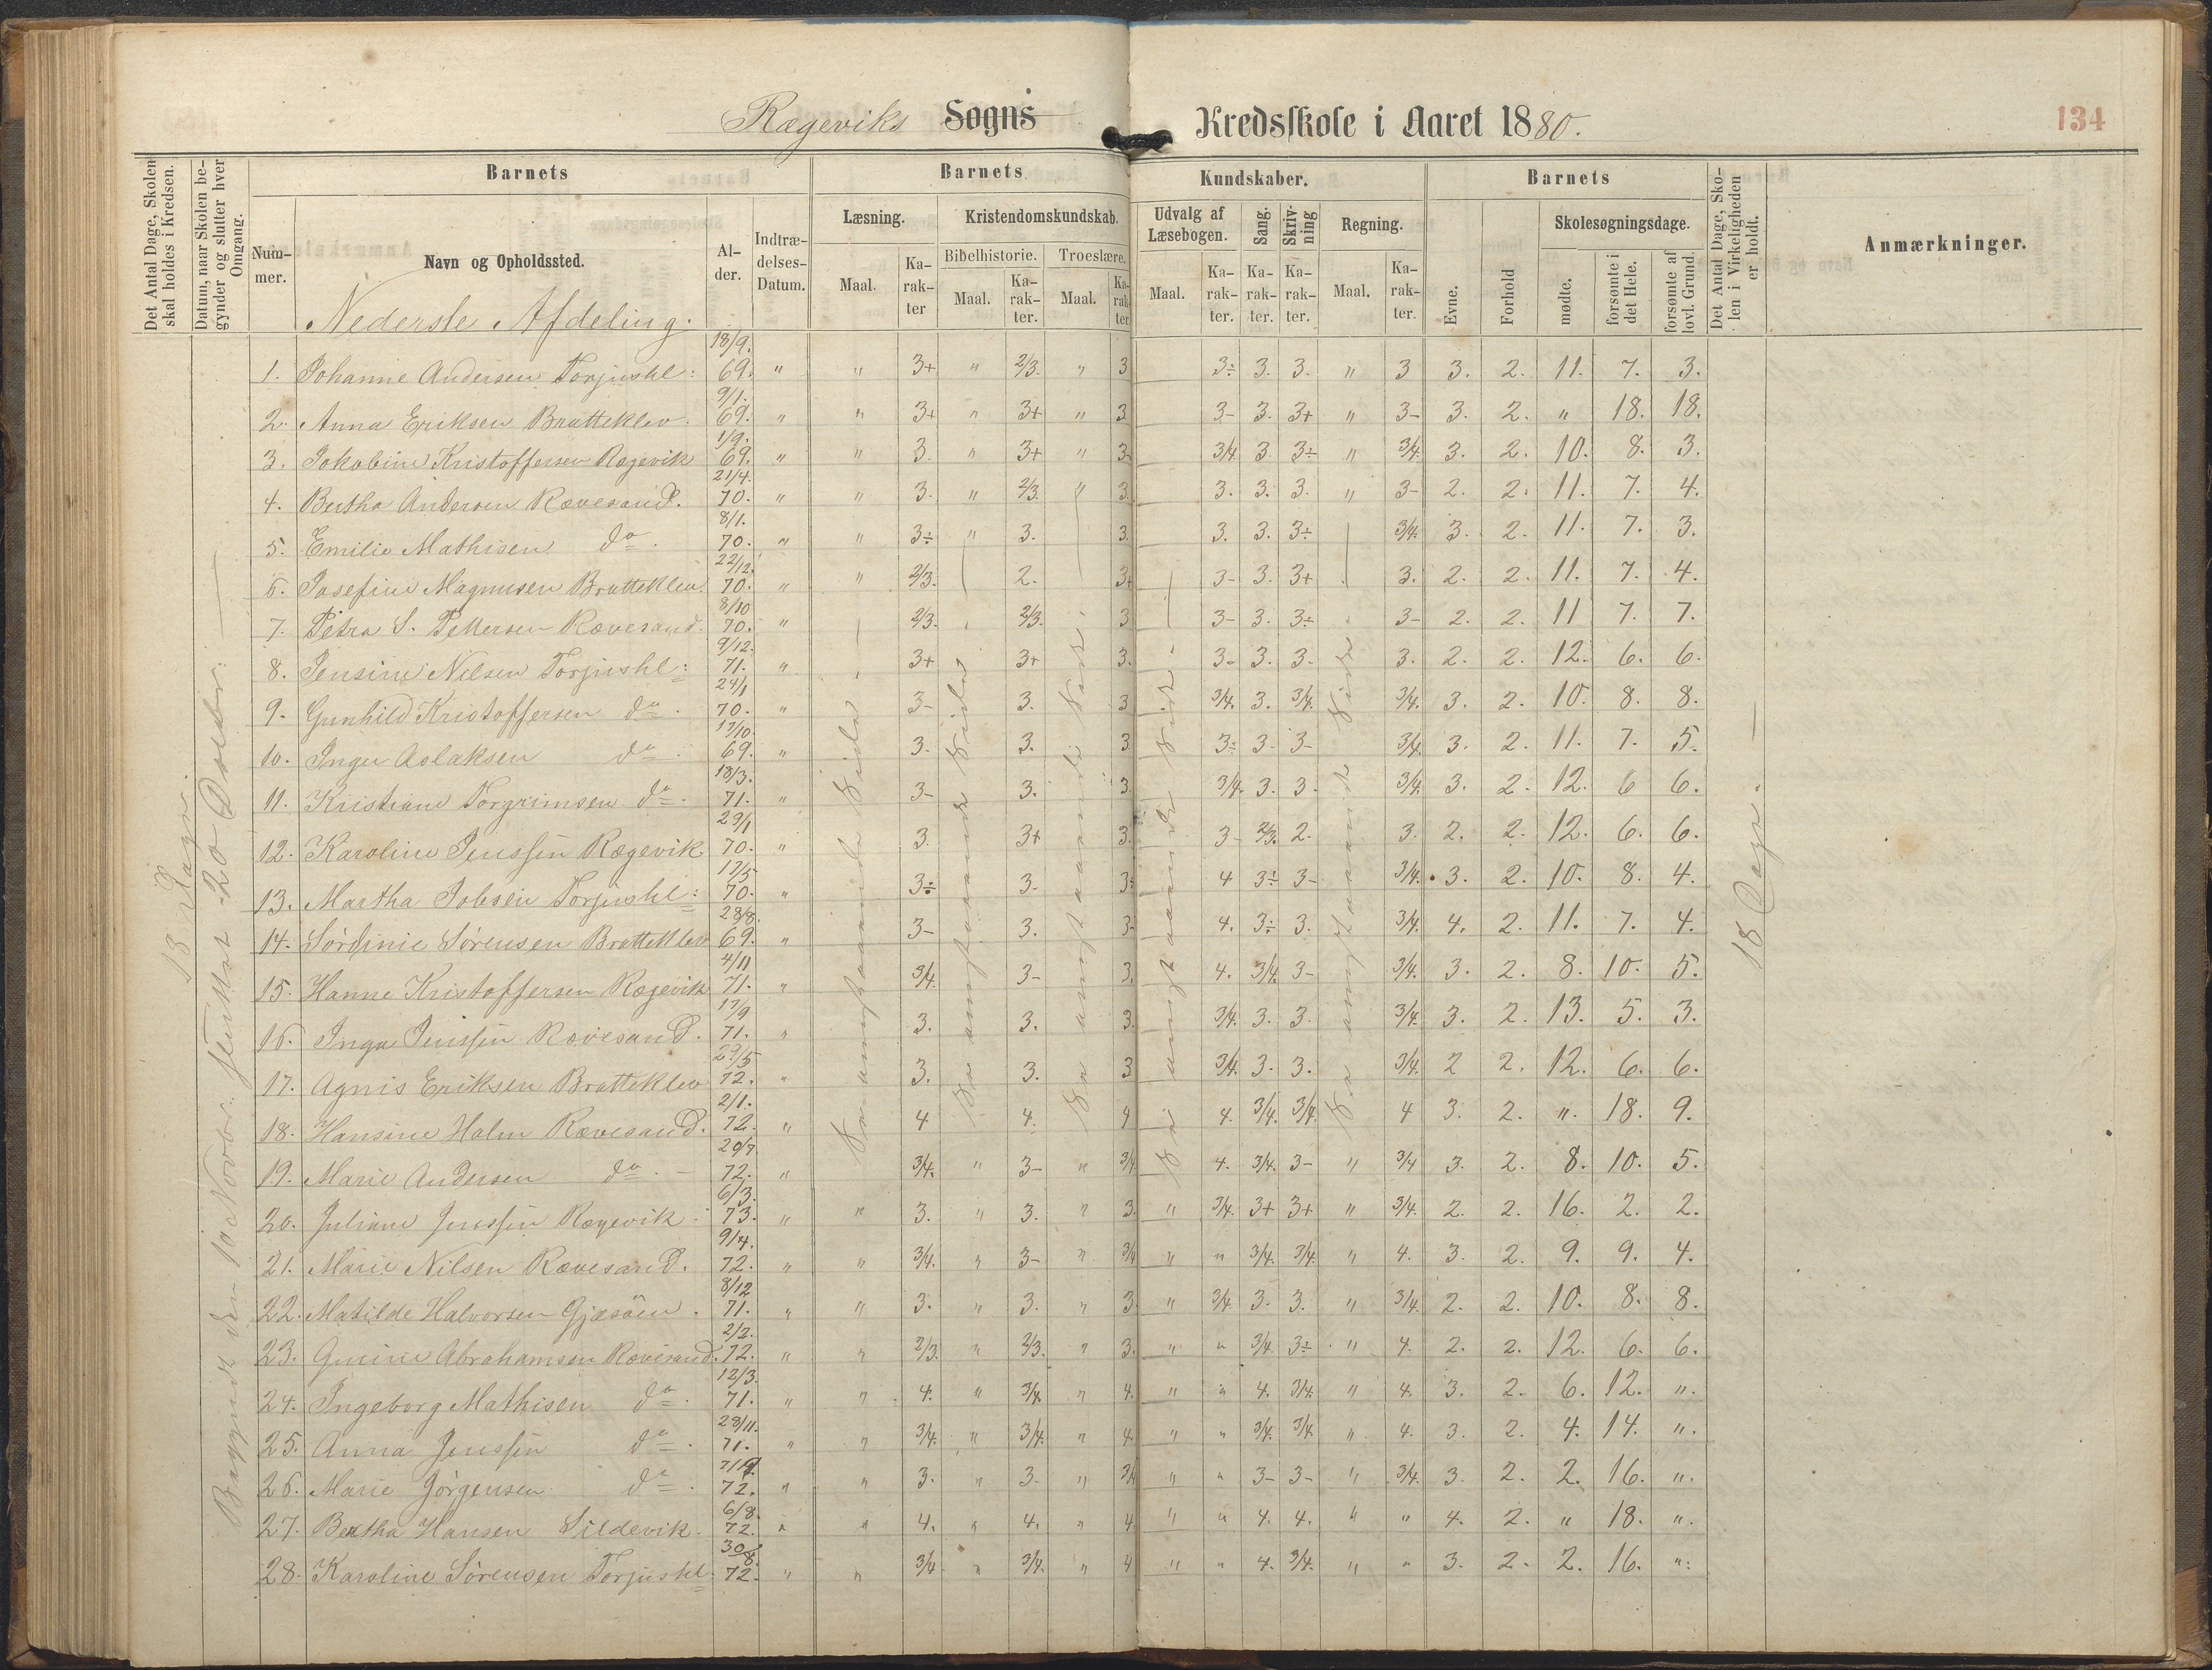 Rægeviks Sogns Kredsskole i Aaret 1880.
134
Det Antal Dage, Skolen skal holdes i Kredsen.
Datum, naar Skolen begynder og slutter hver Omgang.
Barnets
Nummer.
Navn og Opholdssted.
Alder.
Indtrædelses-Datum.
Barnets Kundskaber.
Læsning.
Maal.
Karakter
Kristendomskundskab.
Bibelhistorie.
Maal.
Karakter.
Troeslære.
Maal.
Karakter.
Udvalg af Læsebogen.
Maal.
Karakter.
Sang.
Karakter.
Skrivning
Karakter.
Regning.
Maal.
Karakter.
Barnets
Evne.
Forhold
Skolesøgningsdage.
mødte.
forsømte i det Hele.
forsømte af lovl. Grund.
Det Antal Dage, Skolen i Virkeligheden er holdt.
Anmærkninger.
Nederste Afdeling.
1. Johanne Andersen Torjushl: 18/9. 69. " " 3+ " 2/3. " 3 3÷ 3. 3. " 3 3. 2. 11. 7. 3.
2. Anna Eriksen Bratteklev. 9/1. 69. " " 3+ " 3+ " 3. 3- 3. 3+ " 3- 3. 2. " 18. 18.
3. Jakobine Kristoffersen Rægevik 1/9. 69. " " 3. " 3+ " 3- 3/4. 3. 3÷ " 3/4. 3. 2. 10. 8. 3.
4. Bertha Andersen Rævesand. 21/4. 70. " " 3. " 2/3. " 3. 3. 3. 3. " 3- 2. 2. 11. 7. 4.
5. Emilie Mathisen do. 8/1. 70. " " 3÷ " 3. 3. 3. 3. 3÷ 3/4. 3. 2. 11. 7. 3.
6. Josefine Magnusen Bratteklev. 22/12. 70. " " 2/3. 2. 3+ 3- 3. 3+ 3. 2. 2. 11. 7. 4.
7. Petra S. Pettersen Rævesand. 8/10 70. " 2/3. 2/3. 3 3- 3. 3÷ 3- 2. 2. 11 7. 7.
8. Jensine Nilsen Torjushl: 9/12. 71. " 3+ 3+ 3. 3- 3. 3. 3. 2. 2. 12. 6. 6.
9. Gunhild Kristoffersen do. 24/1 70. " 3- 3. 3 3/4. 3. 3/4. 3/4. 3. 2. 10. 8. 8.
10. Inger Aslaksen do 17/10. 69. " 3. 3. 3 3÷ 3. 3- 3/4. 3. 2. 11. 7. 5.
11. Kristiane Torgrimsen do. 18/3. 71. " 3- 3. 3. 3/4. 3. 3. 3/4. 3. 2. 12. 6 6.
12. Karoline Jenssen Rægevik 29/1 70. " 3. 3+ 3. 3- 2/3. 2. 3. 2. 2. 12. 6. 6.
13. Martha Jobsen Torjushl: 17/5 70. " 3÷ 3. 3÷ 4 3÷ 3- 3/4. 3. 2. 10. 8. 4.
14. Sørdinie Sørensen Bratteklev 28/8. 69. " 3- 3. 3- 4. 3÷ 3. 3/4. 4. 2. 11. 7. 4.
15. Hanne Kristoffersen Rægevik 4/11 71. " 3/4. 3- 3. 4. 3/4. 3- 3/4. 3. 2. 8. 10. 5.
16. Inga Jenssen Rævesand. 17/9 71. " 3. 3. 3. 3/4. 3. 3. 3/4. 3. 2. 13. 5. 3.
17. Agnis Eriksen Bratteklev 29/5 72. " 3. 3. 3 3/4. 3. 3. 3/4. 2 2. 12. 6. 6.
18. Hansine Holm Rævesand. 2/1. 72. " 4 4. 4 4. 3/4. 3/4. 4 3. 2. ". 18. 9.
19. Marie Andersen do. - 20/7. 72. " 3/4. " 3- " 3/4. 4. 3/4. 3- " 3/4 3. 2. 8. 10. 5.
20. Juliane Jenssen Rægevik. 6/3. 73. " " 3. " 3. " 3. " 3/4. 3+ 3+ " 3/4. 2. 2. 16. 2. 2.
21. Marie Nilsen Rævesand. 9/4. 72. " " 3/4. " 3- " 3/4 " " 3/4. 3/4. " 4. 3. 2. 9. 9. 4.
22. Matilde Halvorsen Gjæsöen. 8/12 71. " " 3. " 3. " 3. " 3/4. 3. 3. " 3/4. 2. 2. 10. 8. 8.
23. Abrahamsen Rævesand. 2/2. 72. " " 2/3. " 2/3. " 3. " " 3/4. 3÷ " 4. 2. 2. 12. 6. 6.
24. Ingeborg Mathisen do. 12/3. 71. " " 4. " 3/4. " 4. " " 4. 3/4. " 4. 3. 2. 6. 12. ".
25. Anna Jenssen do. 28/11. 71. " " 3/4. " 3/4. " 4. " " 3/4. 3/4. " 4. 3. 2. 4. 14. ".
26. Marie Jørgensen do. 72. " " 3. " 3. " 3/4 " " 3- 3- " 3/4. 3. 2. 2. 16. ".
27. Bertha Hansen Sildevik. 6/8. 72. " " 4. " 4. " 4. " " 4. 4. " " 4. 2. " 18. ".
28. Karoline Sørensen Torjushl. 30/8. 72. " " 3/4. " 3/4. " 4 " " 4. 3/4. " " 3. 2. 2. 16. ".
18 Dage.
Begyndt den 10de Novbr. sluttet 20 Decbr.
Saa angaaende Side
18 Dage.